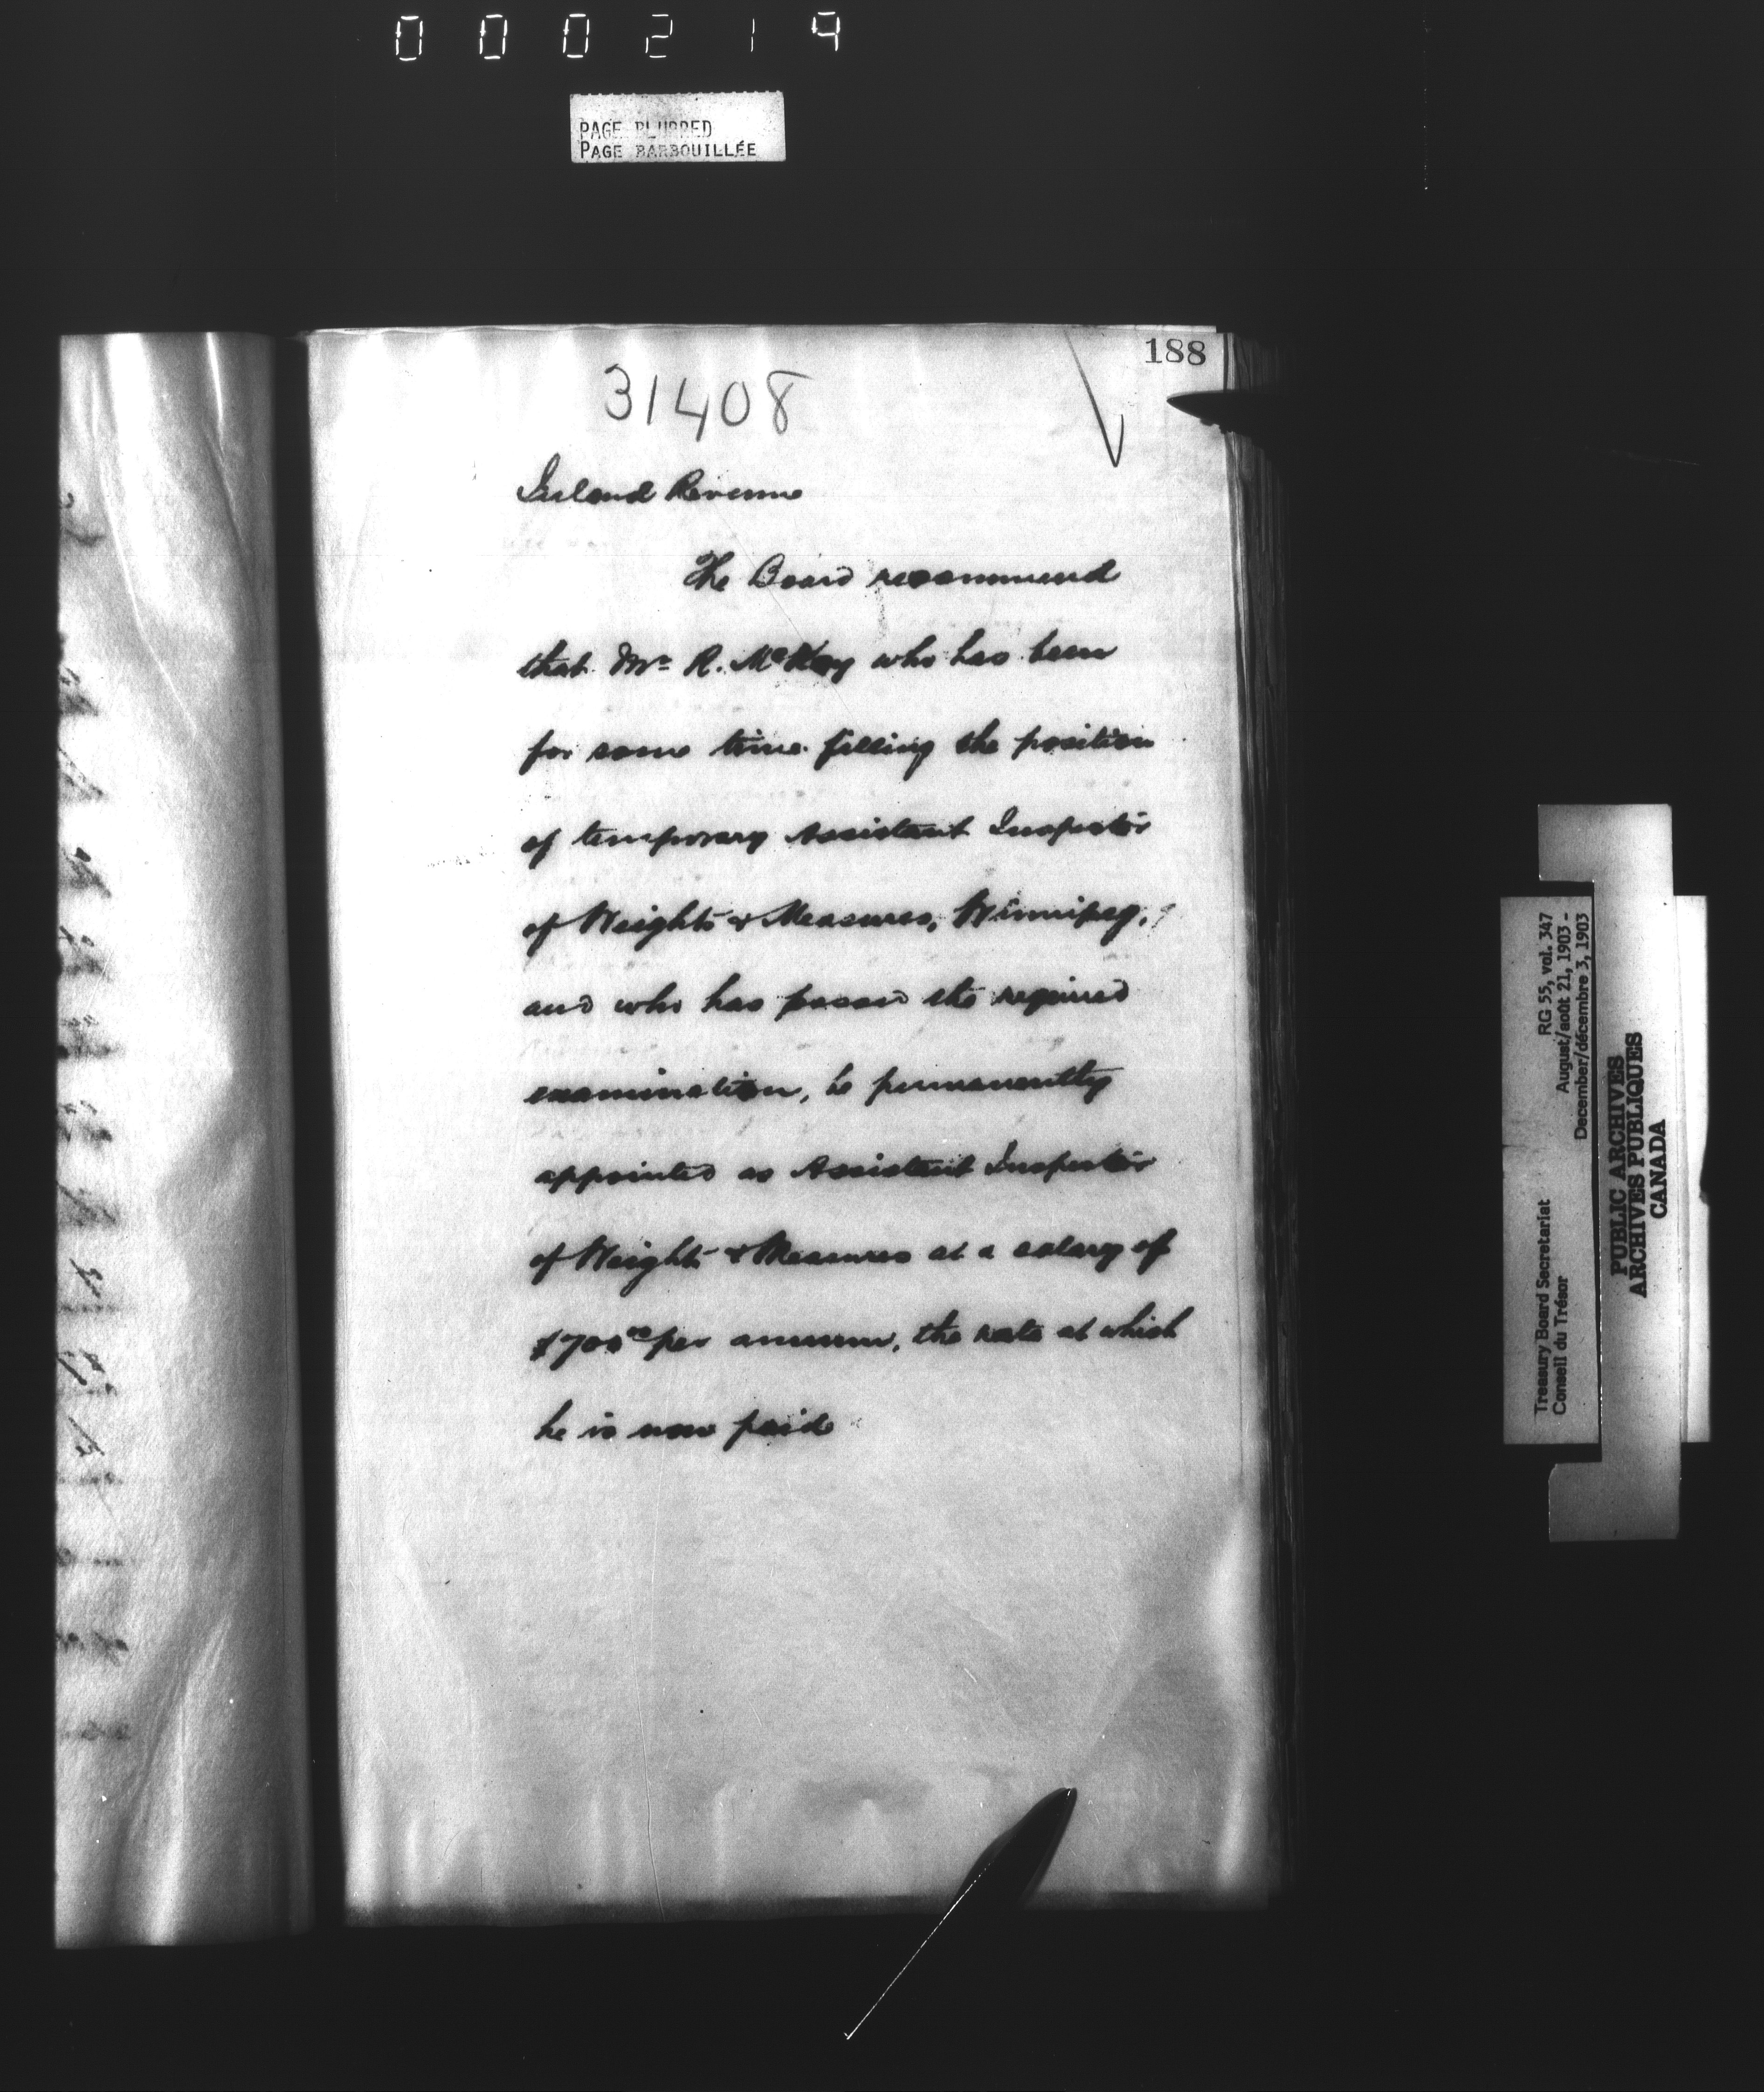 000219
PAGE BLURRED
PAGE BARBOUILLÉE
188
31408
Inland Revenue
The Board recommend
that Mr. R. McKay who has been
for some time filling the position
of temporary Assistant Inspector
of Weights & Measures, Winnipeg,
and who has passed the required
examination, be permanently
appointed as Assistant Inspector
of Weights & Measures at a salary of
$700.00 per annum, the rate at which
he is now paid
Treasury Board Secretariat RG 55, vol. 347
Conseil du Trésor August/août 21, 1903 -
December/décembre 3, 1903
PUBLIC ARCHIVES
ARCHIVES PUBLIQUES
CANADA